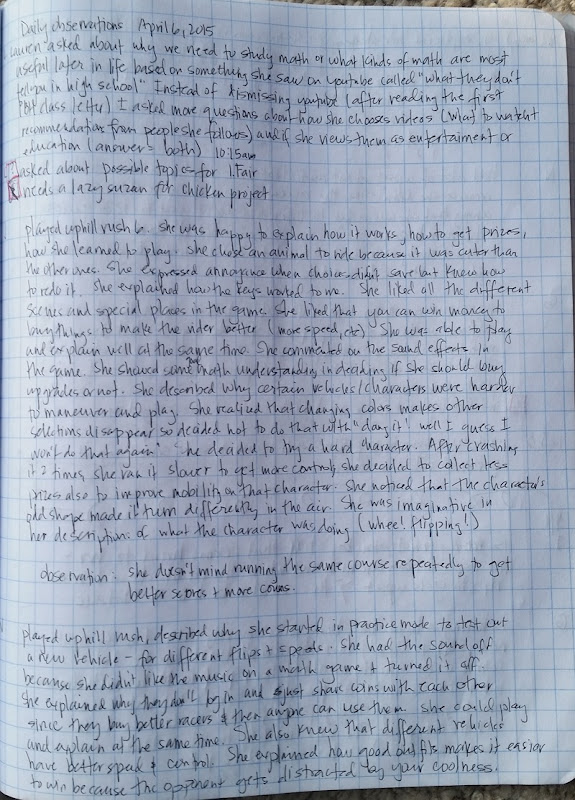 Daily observations April 6, 2015
Lauren asked about why we need to study math or what kinds of math are most
useful later in life based on something she saw on youtube called "what they don't
tell you in high school" Instead of dismissing youtube (after reading the first
class letter) I asked more questions about how she chooses videos (what to watch
recommendations from people she follows) and if she views them as entertaiment or
education (answer = both) 10:15am
asked about possible topics for I. Fair
needs a lazy suzan for chicken project
played uphill rush 6. she was happy to explain how it works, how to get prizes,
how she learned to play. she chose an animal to ride because it was cuter than
the other ones. She expressed annoyance when choices didn't save but knew how
to redo it. She explained how the keys worked to me. She liked all the different
scenes and special places in the game. She liked that you can win money to
buy things to make the rider better (more speed, etc) She was able to play
and explain well at the same time. She commented on the sound effects in
the game. She showed some math understanding in deciding if she should buy
upgrades or not. She described why certain vehicles/characters were harder
to maneuver and play. She realized that changing colors makes other
selections disappear so decided not to do that with "dang it! well I guess I
won't do that again" She decided to try a hard character. After crashing
it 2 times, she ran it slower to get more control, she decided to collect less
prizes also to improve mobility on that character. She noticed that the character's
odd shape made it turn differently in the air. She was imaginative in
her descriptions of what the character was doing (whee! flipping!)
observation: she doesn't mind running the same course repeatedly to get
better scores + more coins.
played uphill rush, described why she started in practice mode to test out
a new vehicle - for different flips + speeds. She had the sound off
because she didn't like the music on a math game + turned it off.
She explained why they don't log in and just share coins with each other
since they buy better racers + then anyone can use them. She could play
and explain at the same time. She also knew that different vehicles
have better speed + control. She explained how good outfits makes it easier
to win because the opponent gets distracted by your coolness.